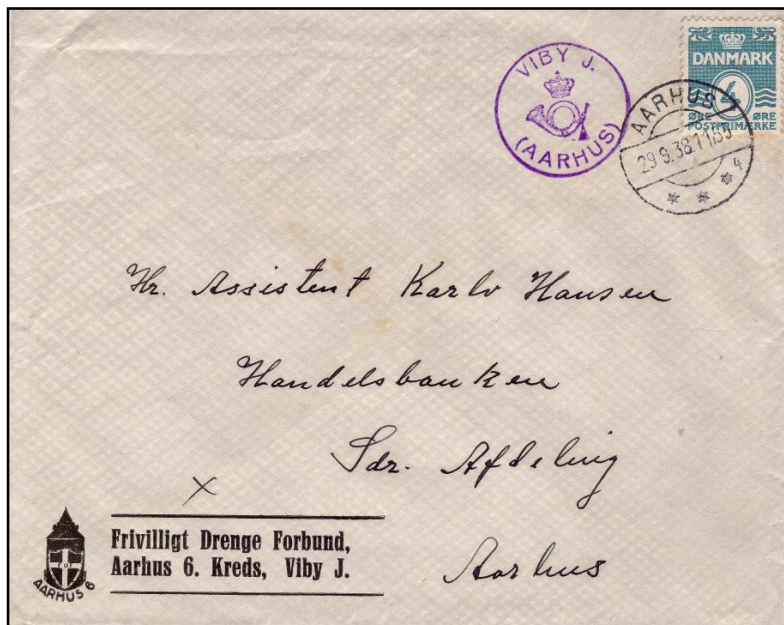 VIBY J.
(AARHUS)
DANMARK
4
ØRE ØRE
POSTFRIMÆRKE
AARHUS 1
29.9.38.11,55
* * * 4
Hr. Assistent Karlo Hansen
Handelsbanken
Sdr. Afdeling
Aarhus
x
Frivilligt Drenge Forbund,
Aarhus 6. Kreds, Viby J.
AARHUS 6